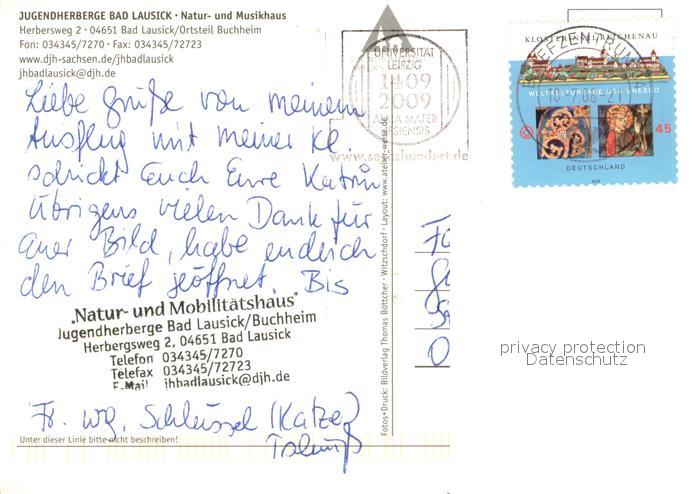 JUGENDHERBERGE BAD LAUSICK · Natur- und Musikhaus
Herbersweg 2 · 04651 Bad Lausick/Ortsteil Buchheim
Fon: 034345/7270 · Fax: 034345/72723
www.djh-sachsen.de/jhbadlausick
jhbadlausick@djh.de
Liebe Grüße von meinem
Ausflug mit meiner Kl.
schickt Euch Eure Katrin
Übrigens vielen Dank für
euer Bild, habe endlich
den Brief geöffnet. Bis
„Natur- und Mobilitätshaus"
Jugendherberge Bad Lausick/Buchheim
Herbergsweg 2, 04651 Bad Lausick
Telefon 034345/7270
Telefax 034345/72723
E-Mail jhbadlausick@djh.de
Fr. wg. Schlüssel (Katze)
Tschüß
Unter dieser Linie bitte nicht beschreiben!
Fotos+Druck: Bildverlag Thomas Böttcher · Witzschdorf · Layout: www.atelier-weise.de
UNIVERSITÄT
LEIPZIG
1409
2009
ALMA MATER
LIPSIENSIS
www.sechshundert.de
BRIEFZENTRUM
KLOSTERINSEL REICHENAU
WELTKULTURERBE DER UNESCO
45
DEUTSCHLAND
2008
privacy protection
Datenschutz